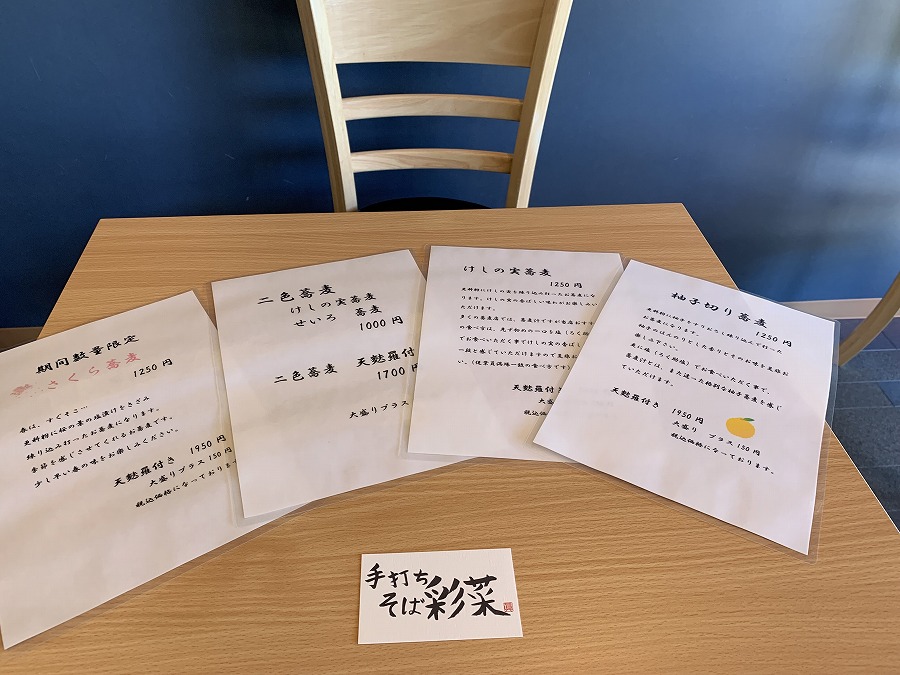 期間数量限定
さくら蕎麦
1250 円
春は、すぐそこ…
更科粉に桜の葉の塩漬けをきざみ
練り込み打ったお蕎麦になります。
季節を感じさせてくれるお蕎麦です。
少し早い春の味をお楽しみください。
天麩羅付き 1950 円
大盛りプラス 150 円
税込価格になっておりま
二色蕎麦
けしの実蕎麦
せいろ 蕎麦
1000 円
二色蕎麦 天麩羅付
1700 円
大盛りプラス
けしの実蕎麦
1250 円
更科粉にけしの実を練り込み打ったお蕎麦にな
ります。けしの実の香ばしい味わいがお楽しみい
ただけます。
多くの蕎麦店では、蕎麦汁ですが当店おすす
の食べ方は、先ず初めの一口を塩(ろく助
でお食べいただく事でけしの実の香ばし
一段と感じていただけますので是非お
い。(従業員満場一致の食べ方です)
天麩羅付
大盛
税込価
柚子切り蕎麦
1250 円
更科粉に柚子をすりおろし練り込んで打った
お蕎麦になります。
柚子のほんのりとした香りとそのお味を是非お
楽しみ下さい。
更に塩(ろく助塩)でお食べいただく事で、
蕎麦汁とは、また違った絶妙な柚子蕎麦を感じ
ていただけます。
天麩羅付き 1950 円
大盛り プラス 150 円
税込価格になっております。
手打ち
そば 彩菜